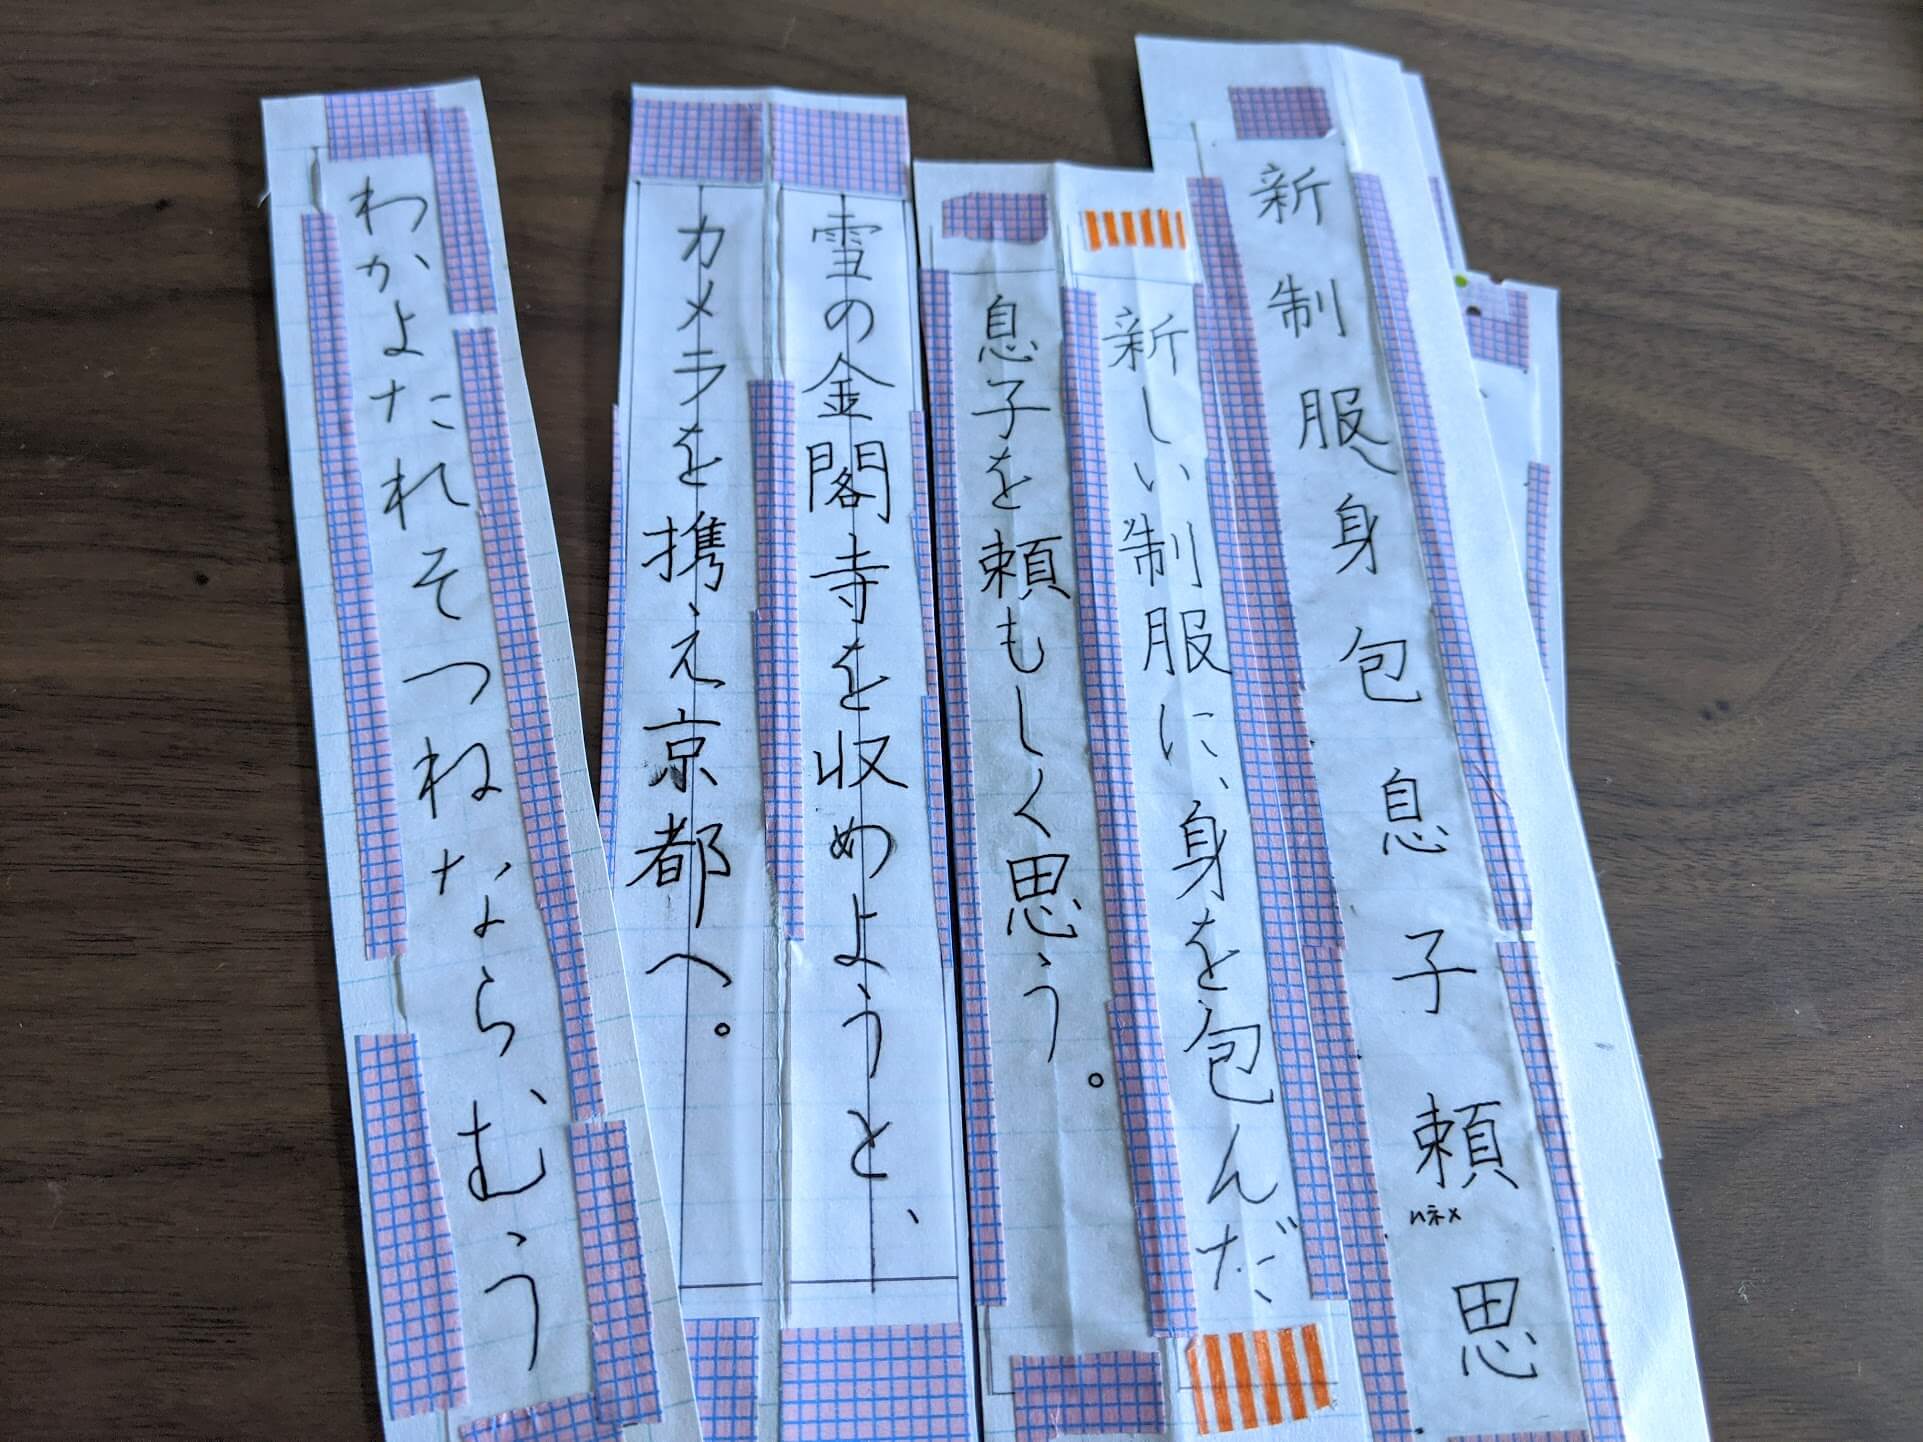 新制服身包息子頼思
ハネメ
新しい制服に、身を包んだ
息子を頼もしく思う。
雪の金閣寺を収めようと、
カメラを携え京都へ。
わかよたれそつねならむう